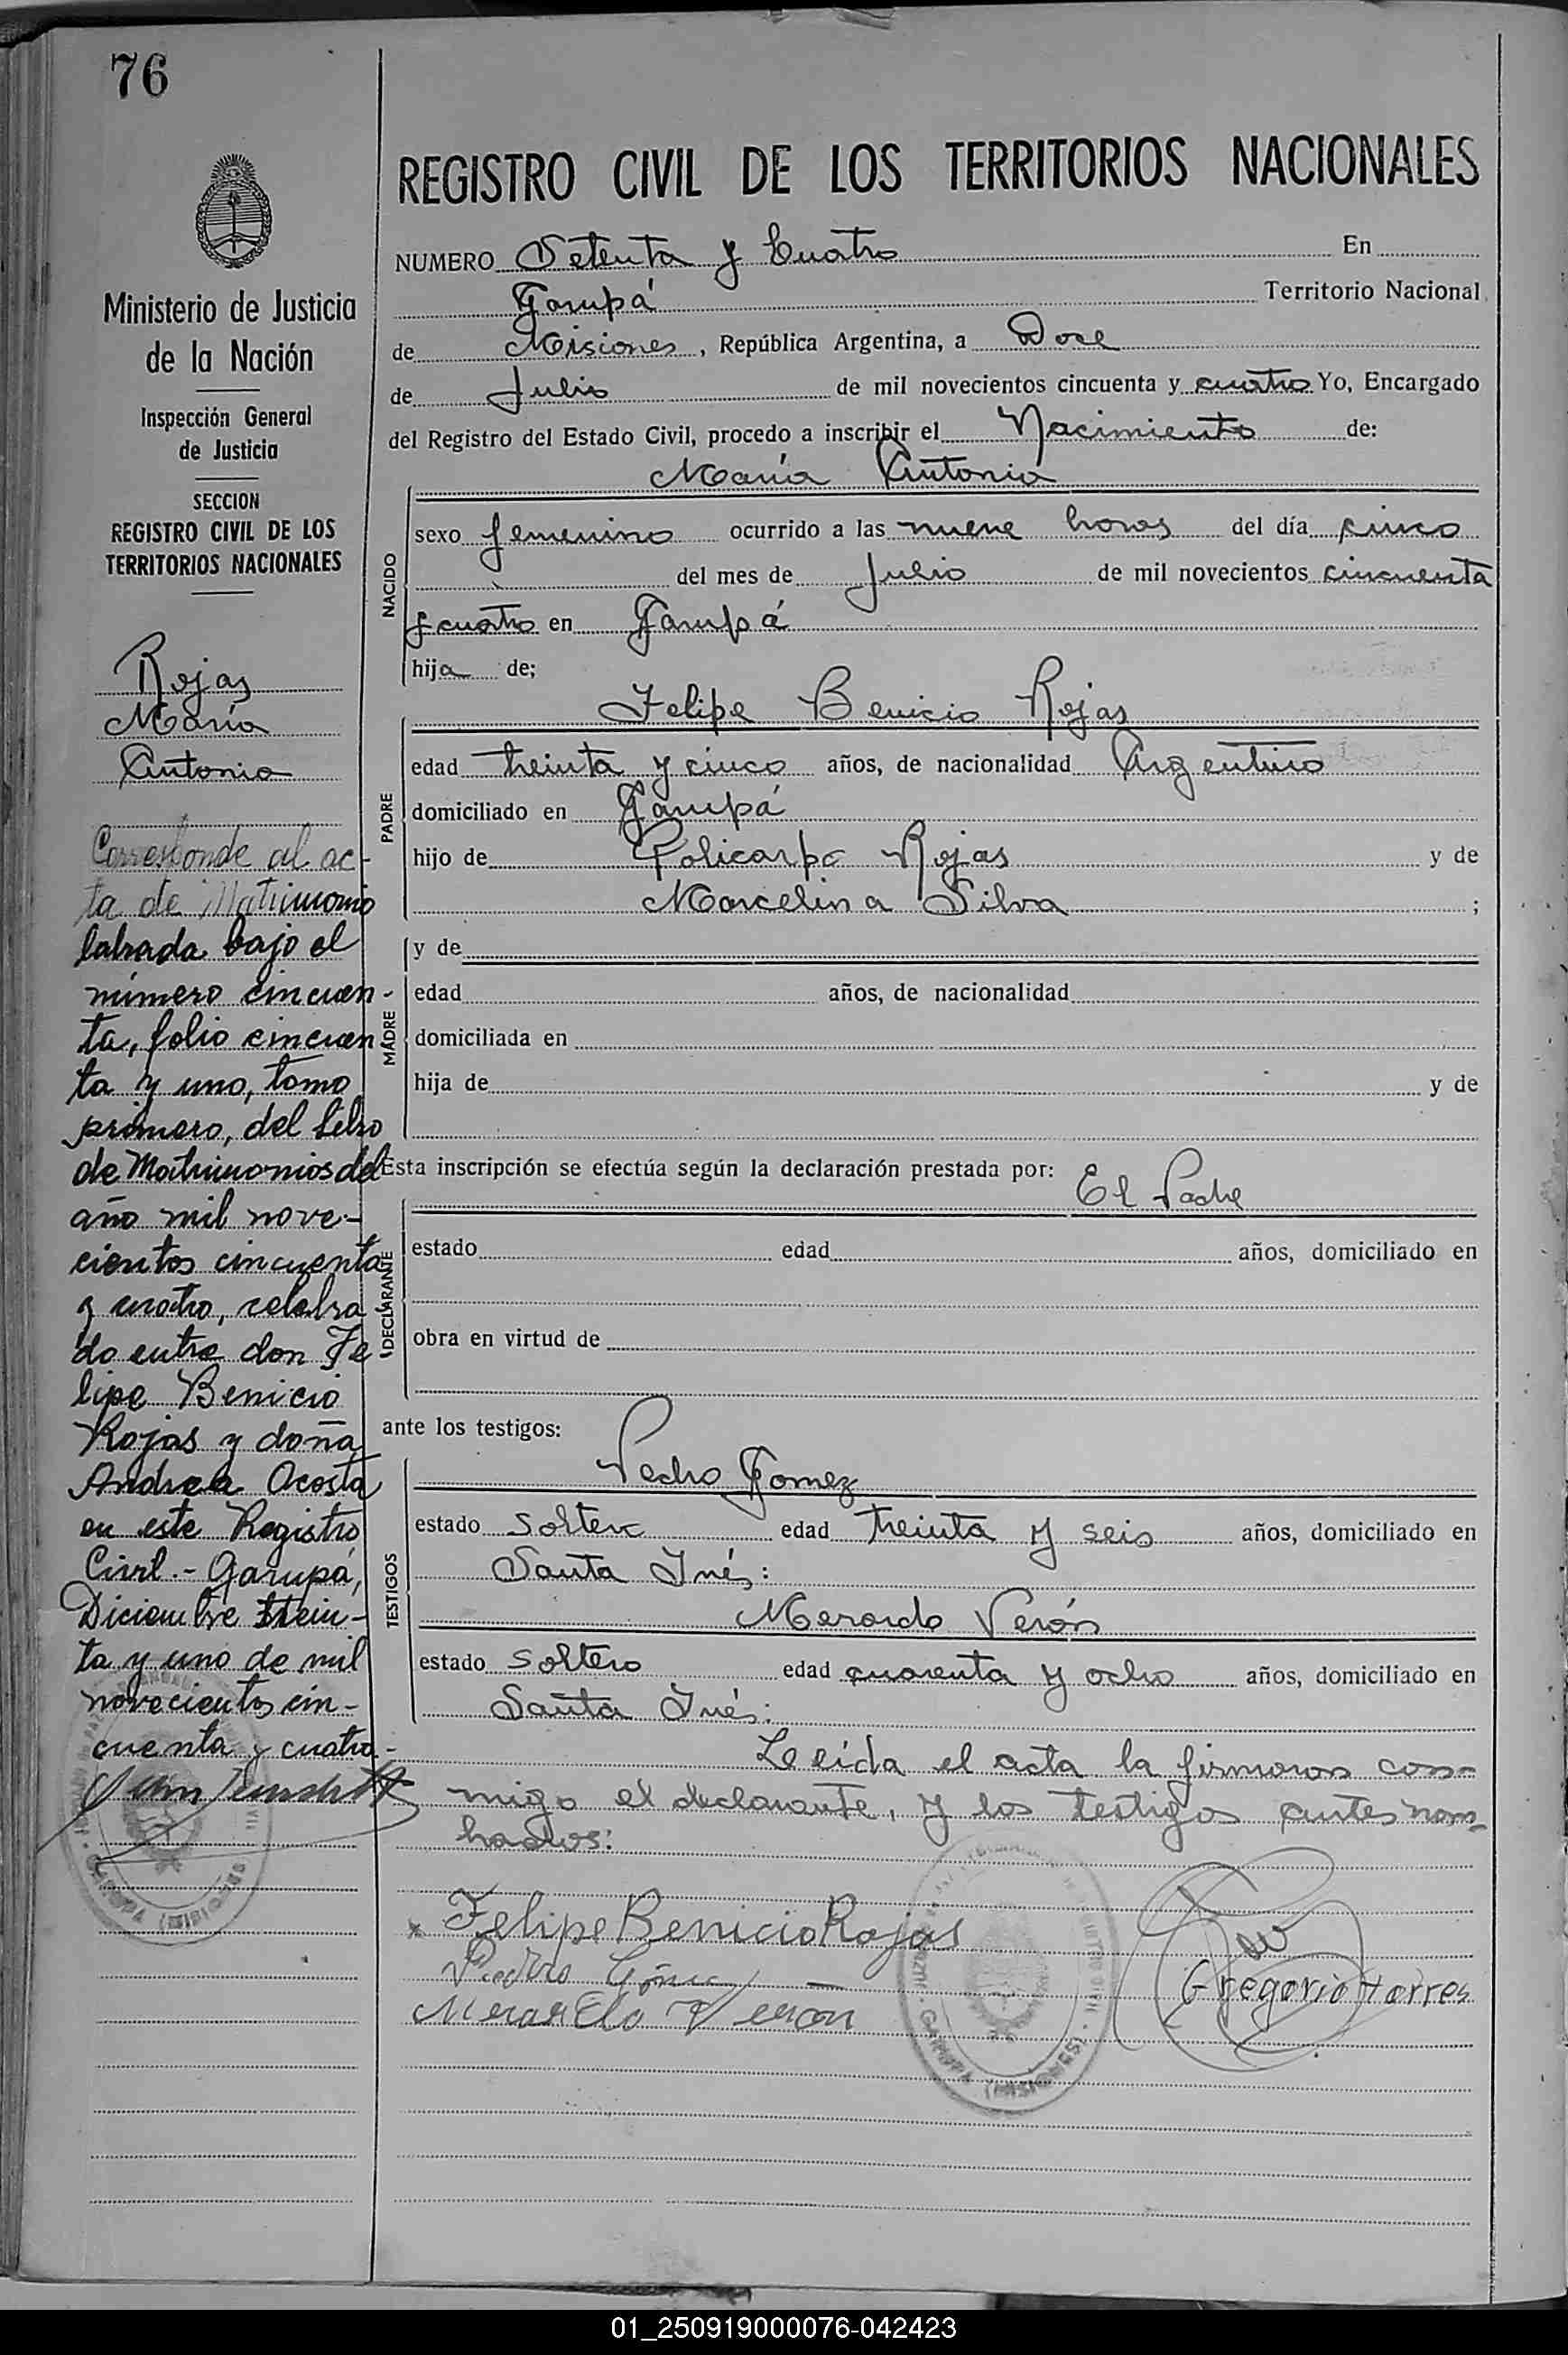 76
REGISTRO CIVIL DE LOS TERRITORIOS NACIONALES
NUMERO Setenta y Cuatro En
Garupá Territorio Nacional
de Misiones, República Argentina, a Doce
de Julio de mil novecientos cincuenta y cuatro Yo, Encargado
del Registro del Estado Civil, procedo a inscribir el Nacimiento de:
María Antonia
NACIDO
sexo femenino ocurrido a las nueve horas del día cinco
del mes de Julio de mil novecientos cincuenta
y cuatro en Garupá
hija de;
Felipe Benicio Rojas
PADRE
edad treinta y cinco años, de nacionalidad Argentino
domiciliado en Garupá
hijo de Policarpo Rojas y de
Marcelina Silva ;
MADRE
y de
edad años, de nacionalidad
domiciliada en
hija de y de
Esta inscripción se efectúa según la declaración prestada por: El Padre
DECLARANTE
estado edad años, domiciliado en
obra en virtud de
ante los testigos:
Pedro Gomez
TESTIGOS
estado Soltero edad treinta y seis años, domiciliado en
Santa Inés:
Merardo Verón
estado Soltero edad cuarenta y ocho años, domiciliado en
Santa Inés:
Leida el acta la firmaron con-
migo el declarante, y los testigos antes nom-
brados:
Felipe Benicio Rojas
Pedro Gómez
Merardo Veron
Gregorio Torres
GARUPA (MISIONES)
Ministerio de Justicia
de la Nación
Inspección General
de Justicia
SECCION
REGISTRO CIVIL DE LOS
TERRITORIOS NACIONALES
Rojas
María
Antonia
Corresponde al ac-
ta de Matrimonio
labrada bajo el
número cincuen-
ta, folio cincuen
ta y uno, tomo
primero, del Libro
de Matrimonios del
año mil nove-
cientos cincuenta
y cuatro, celebra
do entre don Fe
lipe Benicio
Rojas y doña
Andrea Acosta
en este Registro
Civil.- Garupá,
Diciembre trein-
ta y uno de mil
novecientos cin-
cuenta y cuatro.-
GARUPA (MISIONES)
01_250919000076-042423